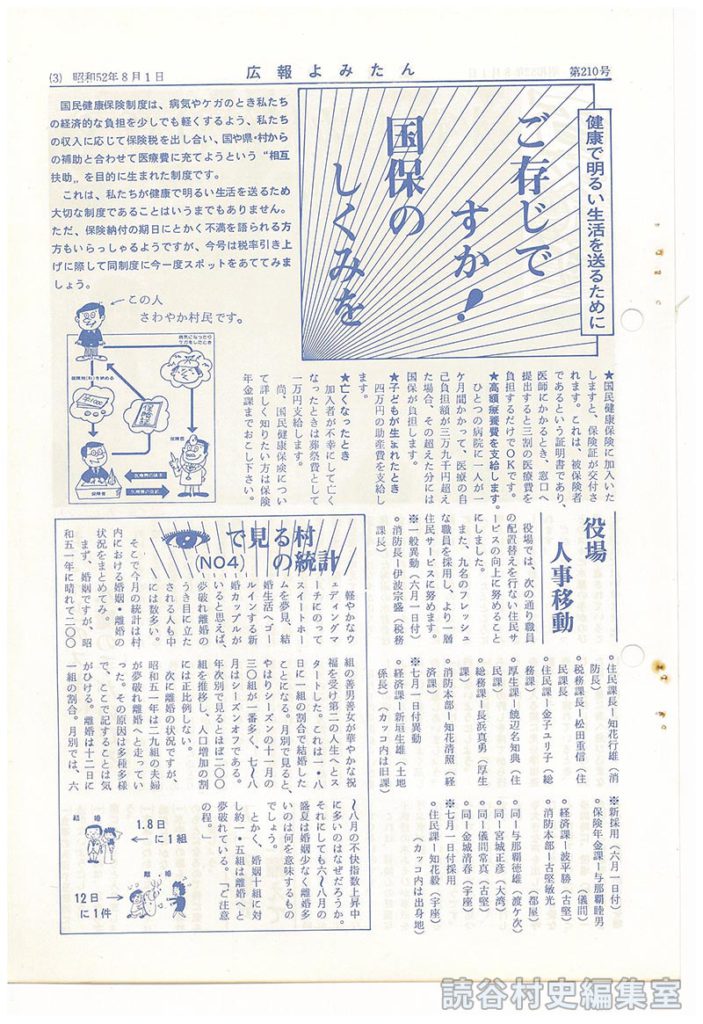 (3) 昭和52年8月1日
広報よみたん
第210号
健康で明るい生活を送るために
ご存じで
すか!
国保の
しくみを
国民健康保険制度は、病気やケガのとき私たち
の経済的な負担を少しでも軽くするよう、私たち
の収入に応じて保険税を出し合い、国や県・村から
の補助と合わせて医療費に充てようという“相互
扶助„を目的に生まれた制度です。
これは、私たちが健康で明るい生活を送るため
大切な制度であることはいうまでもありません。
ただ、保険納付の期日にとかく不満を語られる方
方もいらっしゃるようですが、今号は税率引き上
げに際して同制度に今一度スポットをあててみま
しょう。
この人
さわやか村民です。
病気になったら
ケガをしたとき
保険証
保険者
医療費の請求
医療費の支払
★国民健康保険に加入いた
しますと、保険証が交付さ
れます。これは、被保険者
であるという証明書であり、
医師にかかるとき、窓口へ
提出すると三割の医療費を
負担するだけでOKです。
★高額療養費を支給します。
ひとつの病院に一人が一
ケ月間かかって、医療の自
己負担額が三万九千円超え
た場合、その超えた分には
国保が負担します。
★子どもが生まれたとき
四万円の助産費を支給し
ます。
★亡くなったとき
加入者が不幸にして亡く
なったときは葬祭費として
一万円支給します。
尚、国民健康保険につい
て詳しく知りたい方は保険
年金課までおこし下さい。
役場
人事移動
役場では、次の通り職員
の配置替えを行ない住民サ
ービスの向上に努めること
にしました。
また、九名のフレッシュ
な職員を採用し、より一層
住民サービスに努めます。
※一般異動(六月一日付)
○消防長ー伊波宗盛(税務
課長)
○住民課長ー知花行雄(消
防長)
○税務課長ー松田重信(住
民課長)
○住民課ー金子ユリ子(総
務課)
○厚生課ー饒辺名知典(住
民課)
○総務課ー長浜真勇(厚生
課)
○消防本部ー知花清照(経
済課)
※七月一日付異動
○経済課ー新垣生雄(土地
係長)(カッコ内は旧課)
※新採用(六月一日付)
○保険年金課ー与那覇睦男
(儀間)
○経済課ー波平勝(古堅)
○消防本部ー古堅敏光
(都屋)
○同ー与那覇徳雄(渡ケ次)
○同ー宮城正彦(大湾)
○同ー儀間常真(古堅)
○同ー金城清春(宇座)
※七月一日付採用
○住民課ー知花毅(宇座)
(カッコ内は出身地)
で見る村
の統計
(NO4)
軽やかなウ
ェディングマ
ーチにのって
スイートホー
ムを夢見、結
婚生活へゴー
ルインする新
婚カップルが
いると思えば、
夢破れ離婚の
うき目に立た
される人も中
には数多い。
そこで今月の統計は村
内における婚姻・離婚の
状況をまとめてみ。
まず、婚姻ですが、昭
和五一年に晴れて二〇〇
組の善男善女が華やかな祝
福を受け第二の人生へとス
タートした。これは一・八
日に一組の割合で結婚した
ことになる。月別で見ると、
やはりシーズンの十一月の
三〇組が一番多く、七〜八
月はシーズンオフである。
年次別で見るとほぼ二〇〇
組を推移し、人口増加の割
には正比例しない。
次に離婚の状況ですが、
昭和五一年は二九組の夫婦
が夢破れ離婚へと走ってい
った。その原因は多種多様
で、ここで記することは気
がひける。離婚は十二日に
一組の割合。月別では、六
〜八月の不快指数上昇中
に多いのはなぜだろうか。
それにしても六〜八月の
盛夏は婚姻少なく離婚多
いのは何を意味するもの
でしょう。
とかく、婚姻十組に対
し約一・五組は離婚へと
夢破れている。「ご注意
の程。」
結婚
1.8日
に1組
離婚
12日
に1件
読谷村史編集室